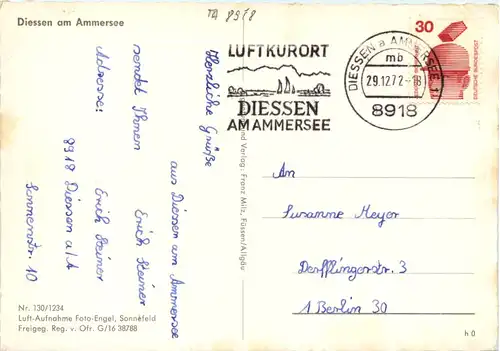 Diessen am Ammersee
8918
Herzliche Grüße
aus Diessen am Ammersee
sendet Ihnen Erich Steiner
Adresse: Erich Steiner
8918 Diessen a/A
Sonnenstr. 10
Nr. 130/1234
Luft-Aufnahme Foto-Engel, Sonnefeld
Freigeg. Reg. v. Ofr. G/16 38788
und Verlag: Franz Milz, Füssen/Allgäu
LUFTKURORT
DIESSEN
AM AMMERSEE
DIESSEN a AMMERSEE 1
mb
29.12.72-18
8918
30
DEUTSCHE BUNDESPOST
An
Susanne Meyer
Derfflingerstr. 3
1 Berlin 30
h 0